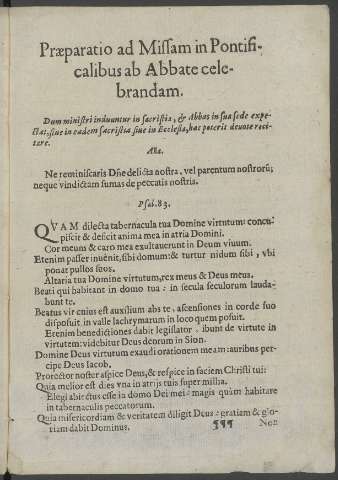 Præparatio ad Missam in Pontifi-
calibus ab Abbate cele-
brandam.
Dum ministri induuntur in sacristia, & Abbas in sua sede expe-
ctat, siue in eadem sacristia siue in Ecclesia, hac poterit deuote reci-
tare.
Aña.
Ne reminiscaris Dñe delicta nostra, vel parentum nostrorũ;
neque vindictam sumas de peccatis nostris.
Psal. 83.
QVAM dilecta tabernacula tua Domine virtutum: concu-
piscit & deficit anima mea in atria Domini.
Cor meum & caro mea exultauerunt in Deum viuum.
Etenim passer inuenit, sibi domum: & turtur nidum sibi, vbi
ponat pullos suos.
Altaria tua Domine virtutum, rex meus & Deus meus.
Beati qui habitant in domo tua: in secula seculorum lauda-
bunt te.
Beatus vir cuius est auxilium abs te, ascensiones in corde suo
disposuit in valle lachrymarum in loco quem posuit.
Etenim benedictiones dabit legislator, ibunt de virtute in
virtutem: videbitur Deus deorum in Sion.
Domine Deus virtutum exaudi orationem meam: auribus per-
cipe Deus Iacob.
Protector noster aspice Deus, & respice in faciem Christi tui:
Quia melior est dies vna in atrijs tuis super millia.
Elegi abiectus esse in domo Dei mei: magis quàm habitare
in tabernaculis peccatorum.
Quia misericordiam & veritatem diligit Deus: gratiam & glo-
riam dabit Dominus. ¶¶¶ Non